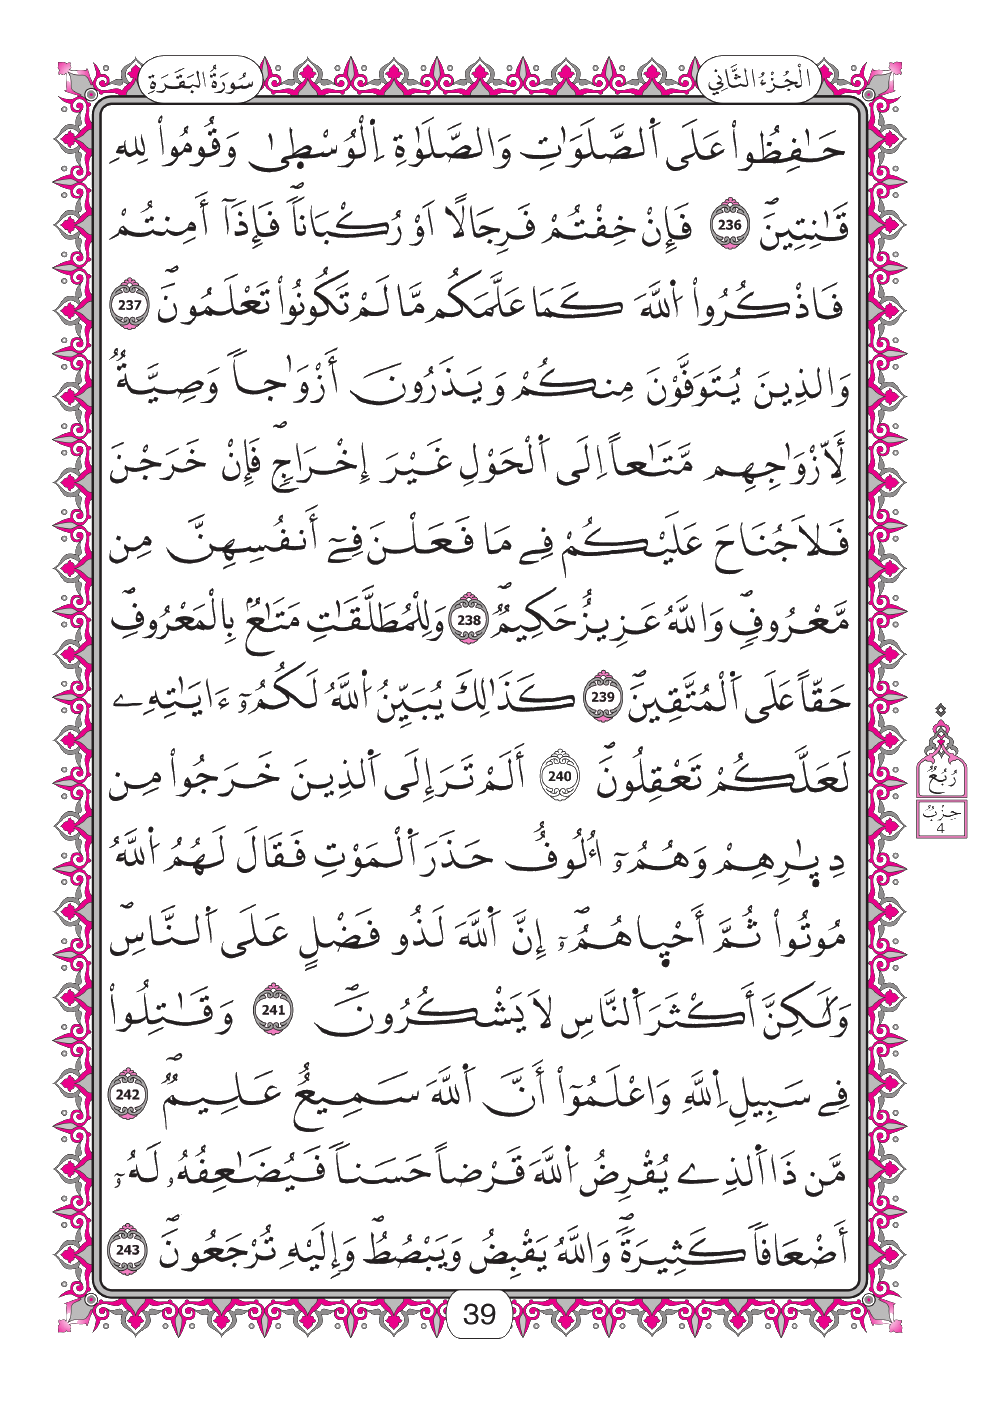 الْجُزْءُ الثَّانِي
سُورَةُ البَقَرَةِ
حَٰفِظُواْ عَلَى اَ۬لصَّلَوَٰتِ وَالصَّلَوٰةِ اِ۬لْوُسْط۪ىٰ وَقُومُواْ لِلهِ
قَٰنِتِينَۖ 236 فَإِنْ خِفْتُمْ فَرِجَالًا اَوْ رُكْبَاناٗۖ فَإِذَآ أَمِنتُمْ
فَاذْكُرُواْ اُ۬للَّهَ كَمَا عَلَّمَكُم مَّا لَمْ تَكُونُواْ تَعْلَمُونَۖ 237
وَالذِينَ يُتَوَفَّوْنَ مِنكُمْ وَيَذَرُونَ أَزْوَٰجاٗ وَصِيَّةٞ
لِّأَزْوَٰجِهِم مَّتَٰعاً اِلَى اَ۬لْحَوْلِ غَيْرَ إِخْرَاجٖۖ فَإِنْ خَرَجْنَ
فَلَا جُنَاحَ عَلَيْكُمْ فِے مَا فَعَلْنَ فِےٓ أَنفُسِهِنَّ مِن
مَّعْرُوفٖۖ وَاللَّهُ عَزِيزٌ حَكِيمٞۖ 238 وَلِلْمُطَلَّقَٰتِ مَتَٰعُۢ بِالْمَعْرُوفِۖ
حَقّاً عَلَى اَ۬لْمُتَّقِينَۖ 239 كَذَٰلِكَ يُبَيِّنُ اُ۬للَّهُ لَكُمُۥٓ ءَايَٰتِهِۦ
لَعَلَّكُمْ تَعْقِلُونَۖ 240 أَلَمْ تَرَ إِلَى اَ۬لذِينَ خَرَجُواْ مِن
دِيٰ۪رِهِمْ وَهُمُۥٓ أُلُوفٌ حَذَرَ اَ۬لْمَوْتِ فَقَالَ لَهُمُ اُ۬للَّهُ
مُوتُواْ ثُمَّ أَحْي۪اهُمُۥٓۖ إِنَّ اَ۬للَّهَ لَذُو فَضْلٍ عَلَى اَ۬لنَّاسِۖ
وَلَٰكِنَّ أَكْثَرَ اَ۬لنَّاسِ لَا يَشْكُرُونَۖ 241 وَقَٰتِلُواْ
فِے سَبِيلِ اِ۬للَّهِ وَاعْلَمُوٓاْ أَنَّ اَ۬للَّهَ سَمِيعٌ عَلِيمٞۖ 242
مَّن ذَا اَ۬لذِے يُقْرِضُ اُ۬للَّهَ قَرْضاً حَسَناٗ فَيُضَٰعِفُهُۥ لَهُۥٓ
أَضْعَافاٗ كَثِيرَةٗۖ وَاللَّهُ يَقْبِضُ وَيَبْصُطُۖ وَإِلَيْهِ تُرْجَعُونَۖ 243
رُبُعُ
حِزْبُ
4
39